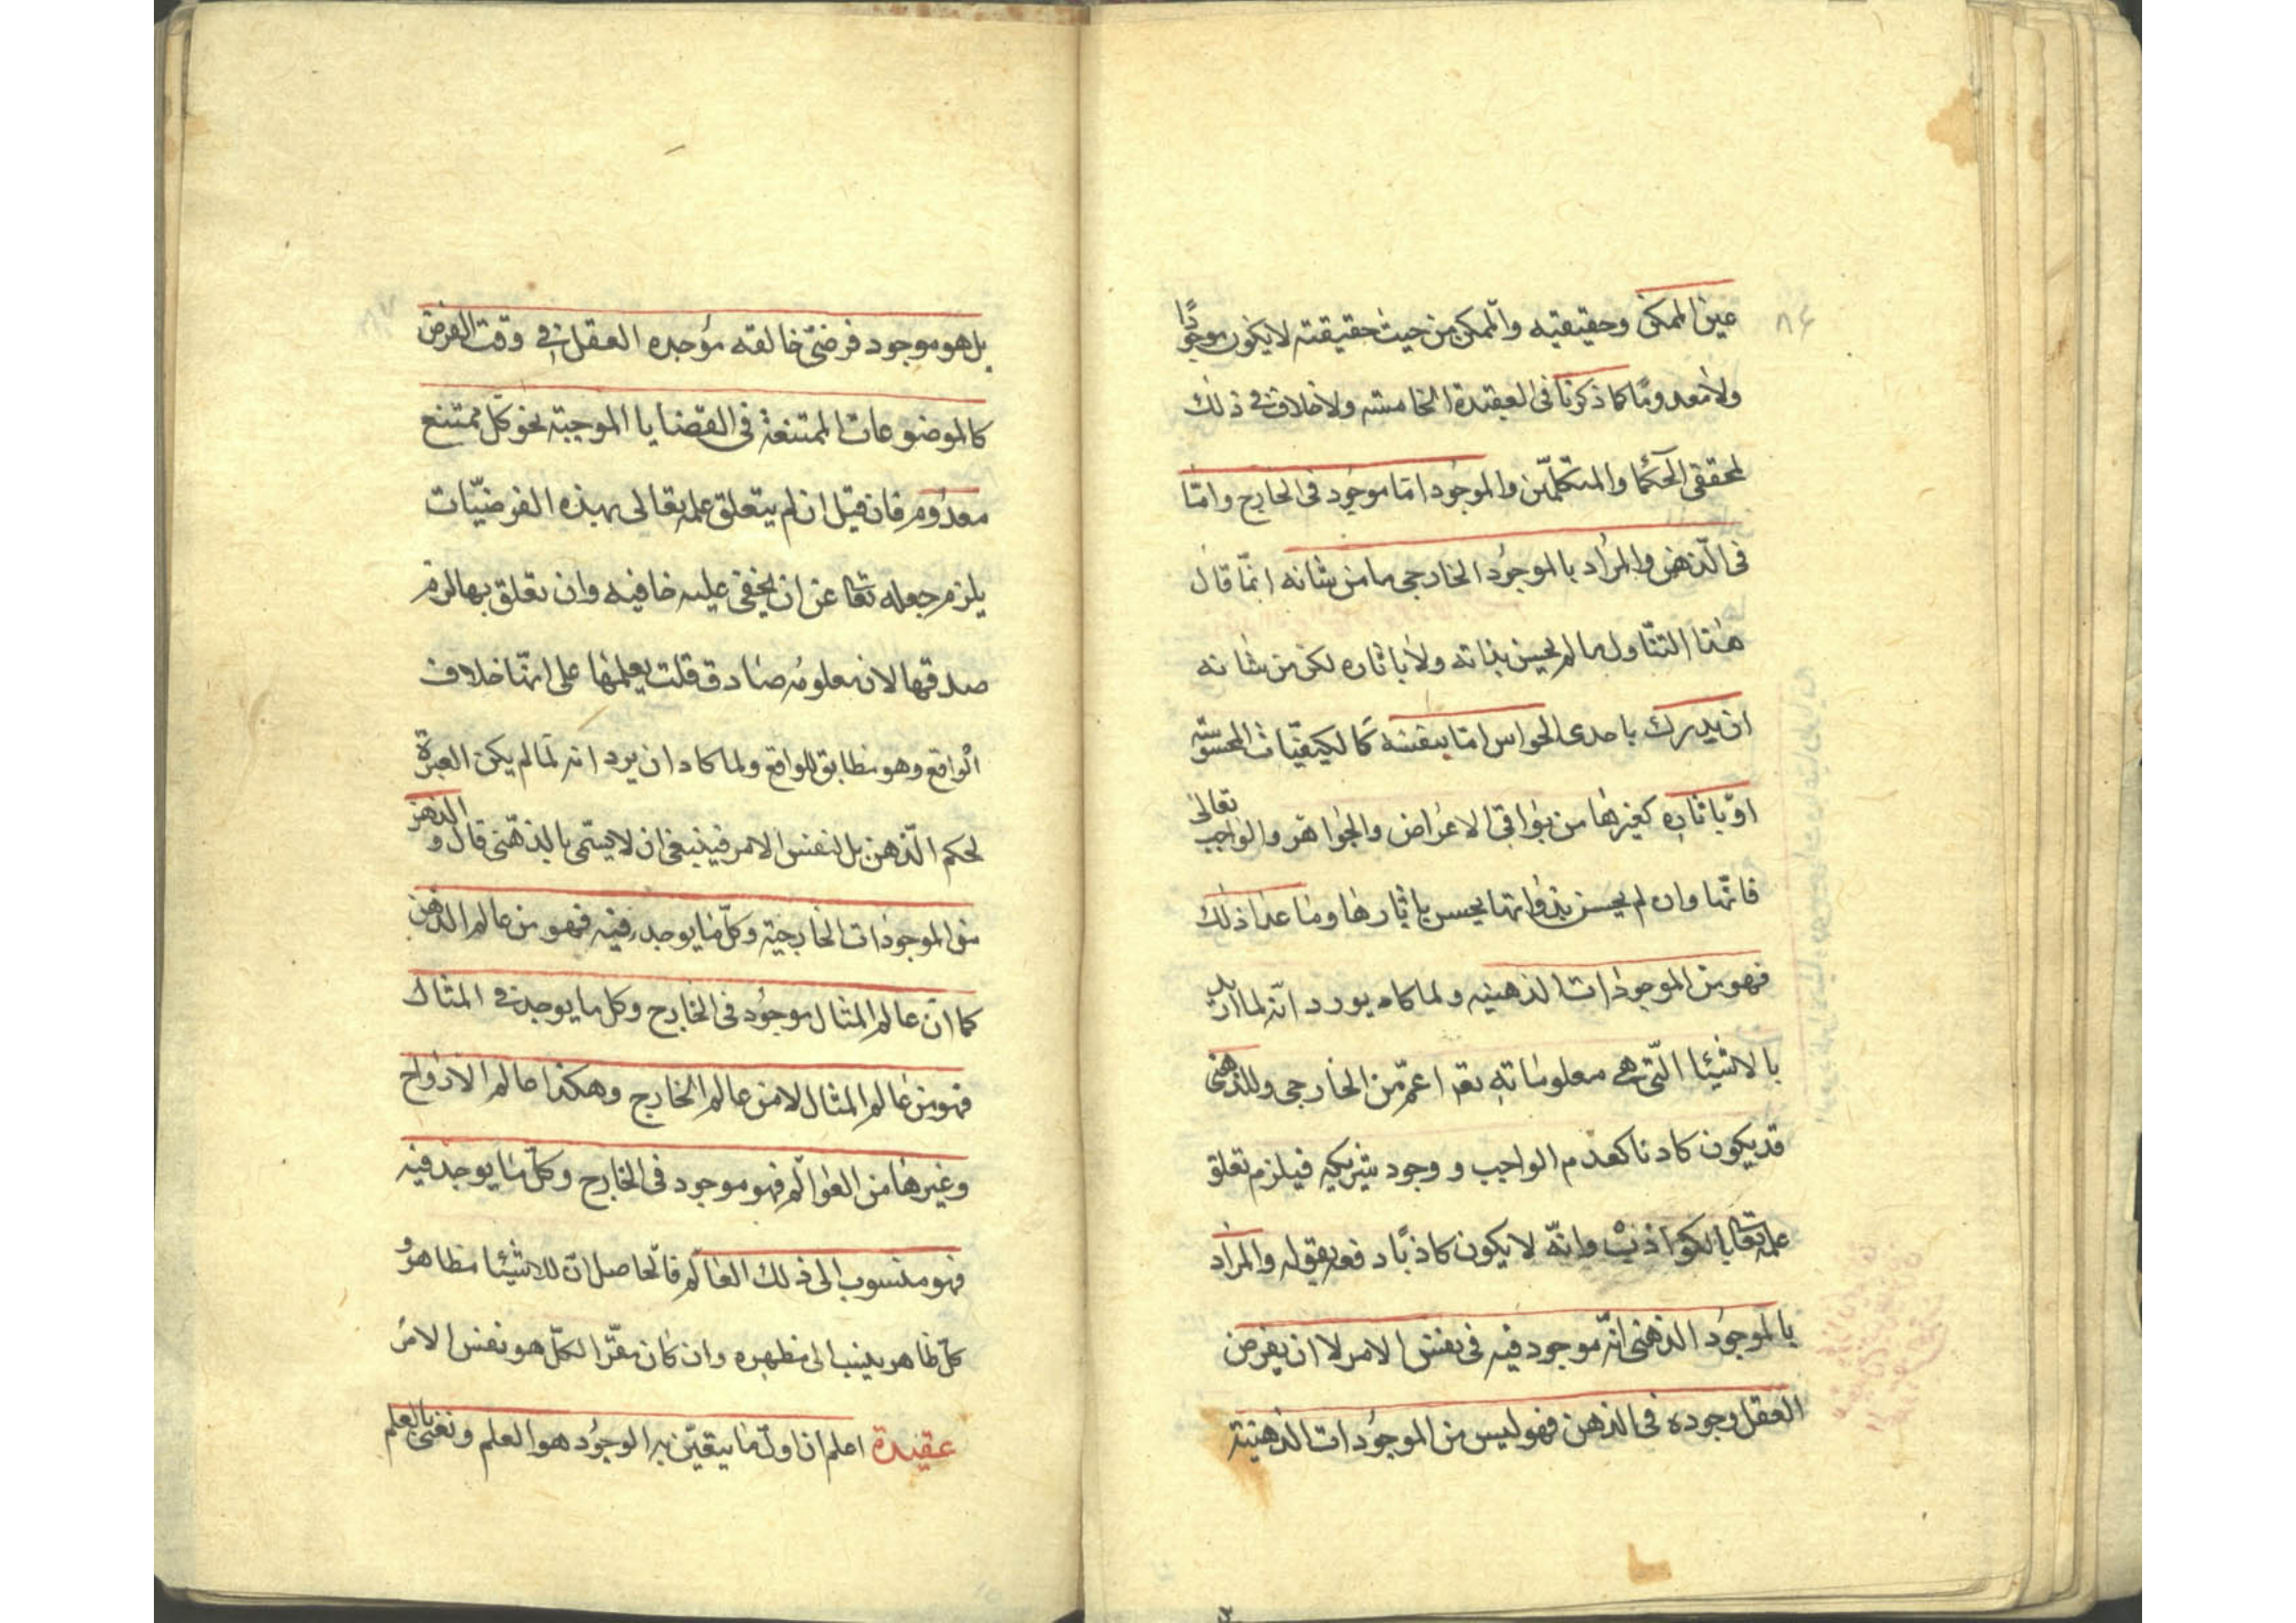 ٨٦
عين الممكن وحقيقيته والممكن من حيث حقيقته لا يكون موجودًا
ولا معدومًا كما ذكرنا فى العقيدة الخامسة ولا خلاف فى ذلك
لمحققى الحكما والمتكلمين والموجود اما موجود فى الخارج واما
فى الذهن والمراد بالموجود الخارجى ما من شانه انما قال
هذا التناول ما لم يحس بذاته ولا باثاره لكن من شانه
ان يدرك باحدى الحواس اما بنفسه كالكيفيات المحسوسة
او باثاره كغيرها من بواقى الاعراض والجواهر والواجب تعالى
فانها وان لم يحسن بذواتها يحس باثارها وما عدا ذلك
فهو من الموجودات الذهنيه ولما كاد يورد انه لما اريد
بالاشيئا التى هى معلوماته تعه اعم من الخارجى وللذهنى
قد يكون كاذبا كعدم الواجب و وجود شريكه فيلزم تعلق
علمه تعالى بالكواذب وانه لا يكون كاذبًا دفعه بقوله والمراد
بالموجود الذهنى انه موجود فيه فى نفس الامر لا ان يفرض
العقل وجوده فى الذهن فهو ليس من الموجودات الذهنية
٨٧
بل هو موجود فرضى خالقه موجده العقل فى وقت الفرض
كالموضوعات الممتنعة فى القضايا الموجبة نحو كل ممتنع
معدوم فان قيل ان لم يتعلق علمه تعالى بهذه الفرضيّات
يلزم جعله تعا عن ان يخفى عليه خافيه وان تعلق بها لزم
صدقها لان معلومه صادق قلت يعلمها على انها خلاف
الواقع وهو مطابق للواقع ولما كاد ان يرد انه لما لم يكن العبرة
لحكم الذهن بل لنفس الامر فينبغى ان لا يسمى بالذهنى قال و الذهن
من الموجودات الخارجية وكل ما يوجد فيه فهو من عالم الذهن
كما ان عالم المثال موجود فى الخارج وكل ما يوجد فى المثال
فهو من عالم المثال لا من عالم الخارج وهكذا عالم الارواح
وغيرها من العوالم فهو موجود فى الخارج وكل ما يوجد فيه
فهو منسوب الى ذلك العالم فالحاصل ان للاشيئا مظاهر و
كل ظاهر ينسب الى مظهره وان كان مقر الكل هو نفس الامر
عقيدة اعلم ان اول ما يتعين به الوجود هو العلم ونعنى بالعلم